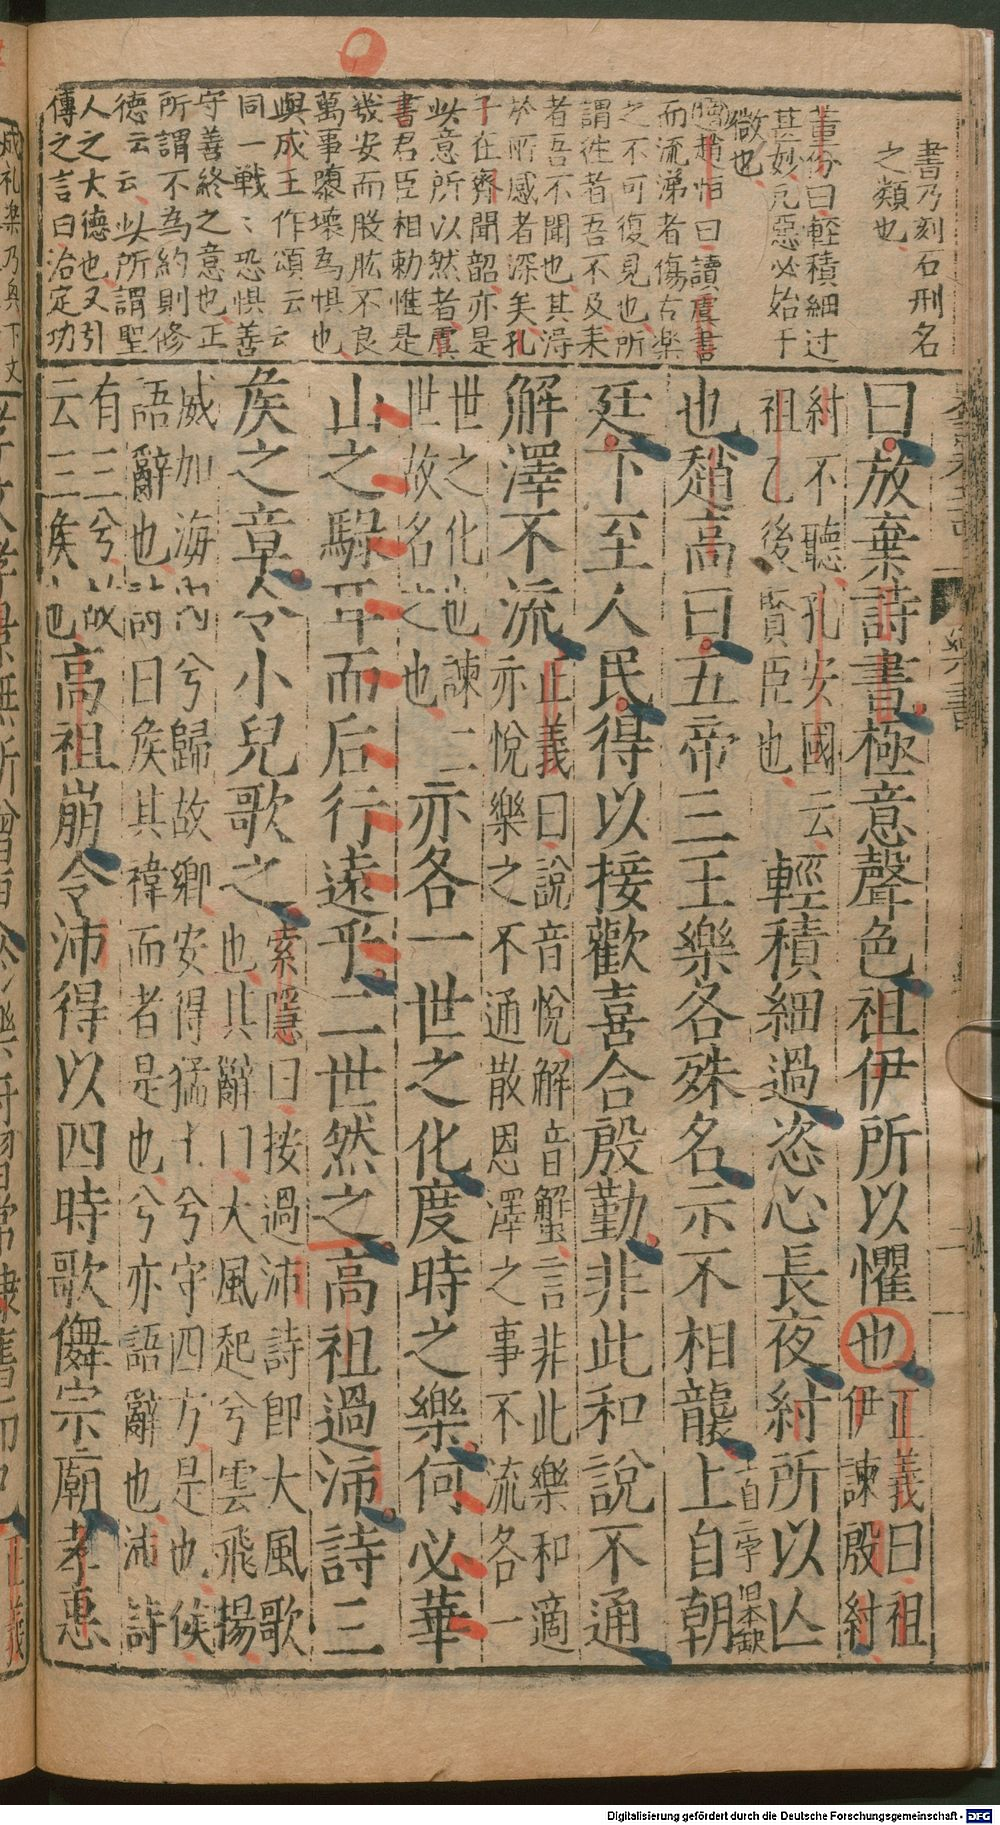 書乃刻石刑名
之類也
董份曰輕積細过
甚妙凡惡必始于
微也
趙恒曰讀虞書
而流涕者傷古樂
之不可復見也所
謂徃者吾不及耒
者吾不聞也其淂
於所感者深矣孔
子在齊聞韶亦是
此意所以然者虞
書君臣相勅惟是
幾安而股肱不良
萬事隳壞為惧也
與成王作頌云云
同一戰〻恐惧善
守善終之意也正
所謂不為約則修
德云云此所謂聖
人之大德也又引
傳之言曰治定功
曰放棄詩書極意聲色祖伊所以懼也
正義曰祖
伊諫殷紂
紂不聽孔安國云
祖乙後賢臣也
輕積細過恣心長夜紂所以亾
也趙高曰五帝三王樂各殊名示不相襲上自朝
上自二字旧本缺
廷下至人民得以接歡喜合殷勤非此和說不通
解澤不流
正義曰說音悅解音蟹言非此樂和適
亦悅樂之不通散恩澤之事不流各一
世之化也諫二
世故名之也
亦各一世之化度時之樂何必華
山之騄耳而后行遠乎二世然之高祖過沛詩三
矦之章令小兒歌之
索隱曰按過沛詩即大風歌
也其辭曰大風起兮雲飛揚
威加海內兮歸故鄉安得猛士兮守四方是也侯
語辭也詩曰矦其禕而者是也兮亦語辭也沛詩
有三兮故
云三矦也
高祖崩令沛得以四時歌儛宗廟孝惠
Digitalisierung gefördert durch die Deutsche Forschungsgemeinschaft - DFG